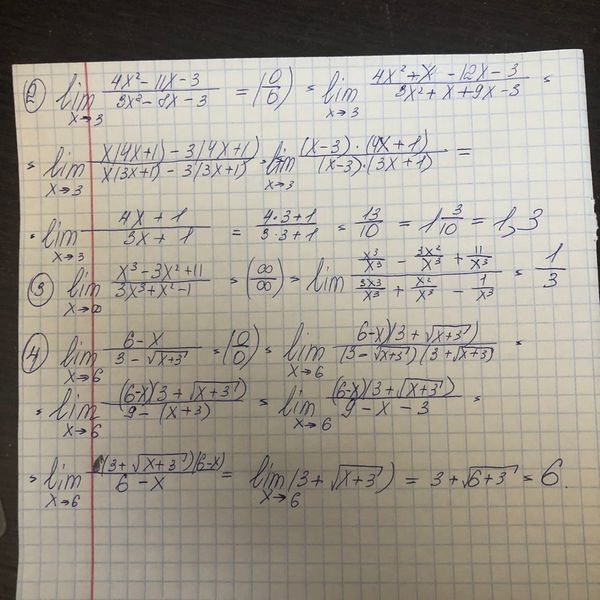 ② lim x→3 (4x² - 11x - 3)/(3x² - 8x - 3) = (0/0) = lim x→3 (4x² + x - 12x - 3)/(3x² + x + 9x - 3) =
= lim x→3 (x(4x+1) - 3(4x+1))/(x(3x+1) - 3(3x+1)) = lim x→3 ((x-3)·(4x+1))/((x-3)·(3x+1)) =
= lim x→3 (4x + 1)/(3x + 1) = (4·3+1)/(3·3+1) = 13/10 = 1 3/10 = 1,3
③ lim x→∞ (x³ - 3x² + 11)/(3x³ + x² - 1) = (∞/∞) = lim (x³/x³ - 3x²/x³ + 11/x³)/(3x³/x³ + x²/x³ - 1/x³) = 1/3
④ lim x→6 (6-x)/(3 - √(x+3)) = (0/0) = lim x→6 (6-x)(3 + √(x+3))/(3 - √(x+3))(3 + √(x+3)) =
= lim x→6 (6-x)(3 + √(x+3))/(9 - (x+3)) = lim x→6 (6-x)(3 + √(x+3))/(9 - x - 3) =
= lim x→6 (3 + √(x+3))(6-x)/(6-x) = lim x→6 (3 + √(x+3)) = 3 + √(6+3) = 6.